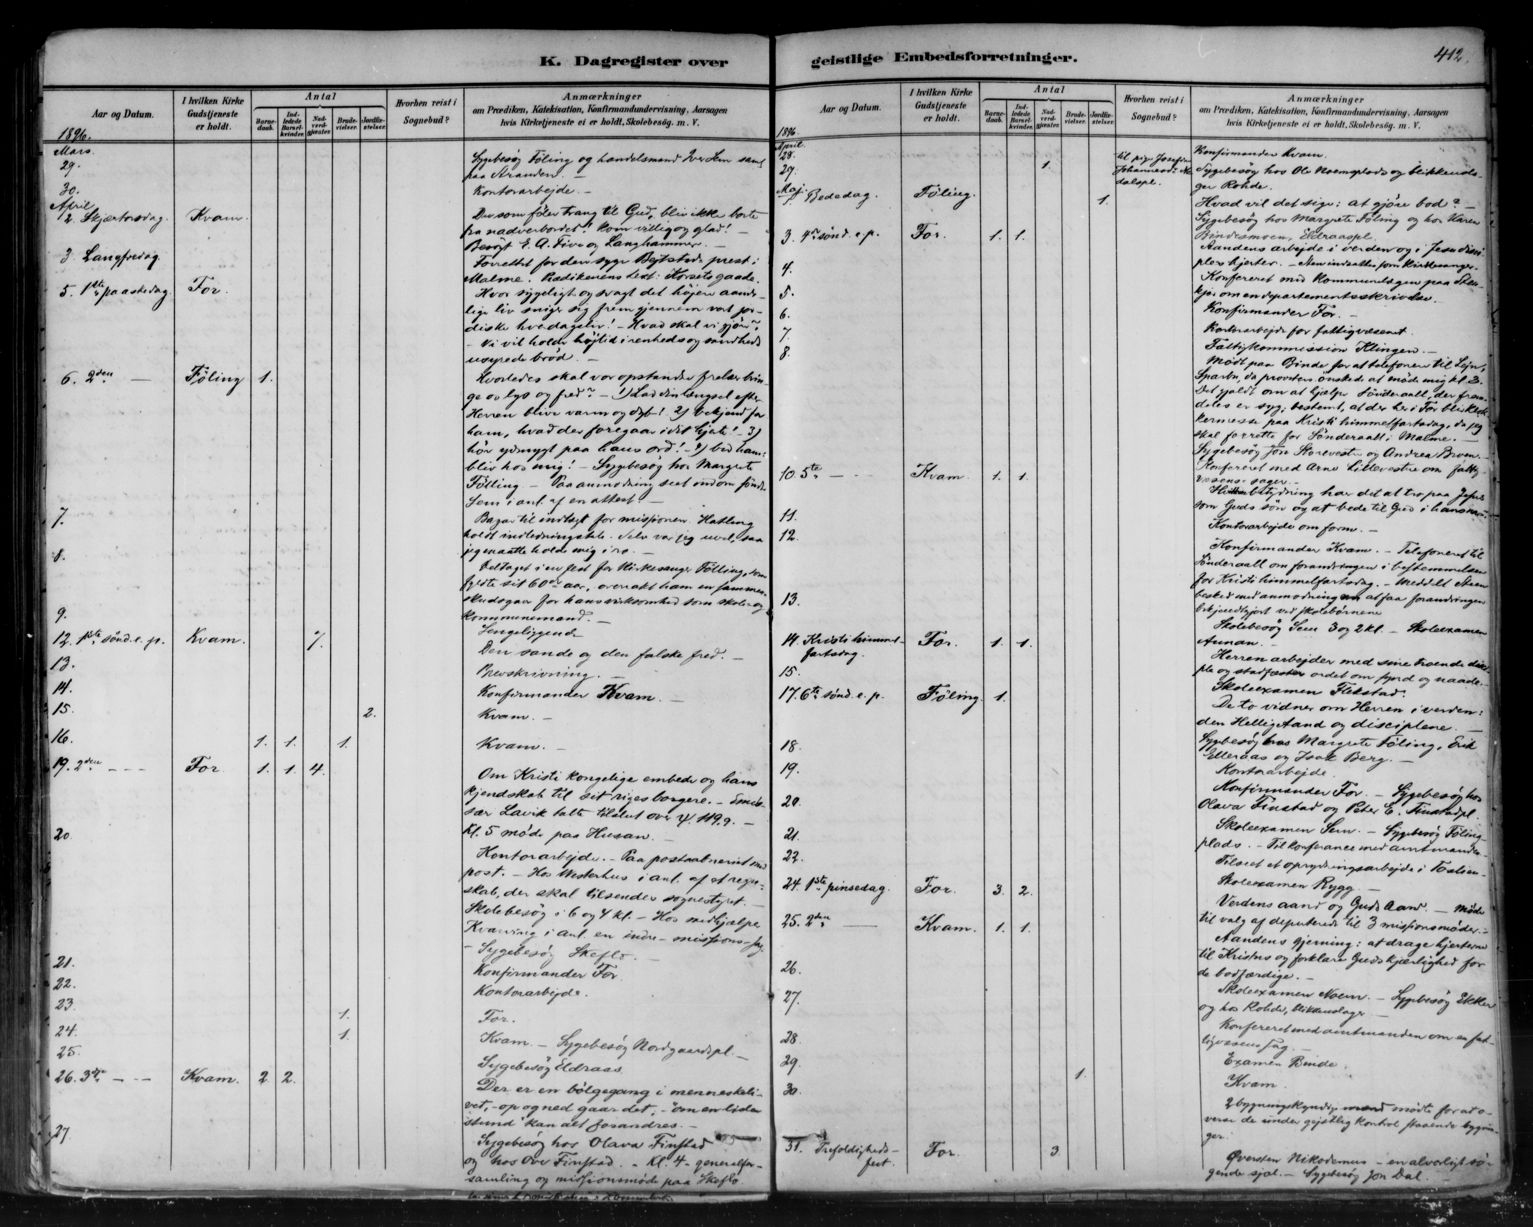 K. Dagregister over
Aar og Datum.
I hvilken Kirke Gudstjeneste er holdt.
Antal
Barne-daab.
Ind-ledede Barsel-kvinder.
Nad-verd-gjester.
Brude-vielser.
Jordfæ-stelser.
Hvorhen reist i Sognebud?
Anmærkninger
om Prædiken, Katekisation, Konfirmandundervisning, Aarsagen
hvis Kirketjeneste ei er holdt, Skolebesøg. m. V.
1896.
Mars.
29. Sygebesøg Føling og handelsmand Iver Sem
paa Stranden. —
30. Kontorarbejde. —
April
2. Skjærtorsdag. Kvam. Du som føler trang til Gud, bliv ikke borte
fra nadverbordet! kom villig og glad! —
Besøgt af Five og Langhammer. —
3. Langfredag Forrettet for den syge Bejtstads prest i
Malme. Prædikenens text: Korsets gaade.
5. 1ste paaskedag. For. Hvor sygeligt og svagt det højere aande-
lige liv sniger sig frem gjennem vort jor-
diske hverdagsliv! — Hvad skal vi gjøre?
— Vi vil holde højtid i renheds og sandheds
usyrede brød. —
6. 2den — Føling 1. Hvorledes skal vor opstandne frelser brin-
ge os lys og fred? — 1) Lad din længsel efter
Herren blive varm og dyb! 2) bekjend for
ham, hvad der foregaar i dit hjerte! — 3)
hør ydmygt paa hans ord! — 4) bed ham:
bliv hos mig! — Sygebesøg hos Margrete
Følling — Paa anmodning
Sem i anl. af en attest. —
7. Bazar til indtægt for missionen. Hatling
holdt indledningstale. Selv var jeg uvel, saa
jeg maatte holde mig i ro. —
8. Deltaget i en fest for Kirkesanger Følling, som
fyldte sit 60de aar, overrakt ham en sammen-
skudsgave for hans virksomhed som skole- og
kommunemand. —
9. Sengeliggende
12. 1ste sønd. e. p. Kvam. 7. Den sande og den falske fred. —
13. Brevskrivning. —
14. Konfirmander Kvam. —
15. 2. Kvam. —
16. 1. 1. 1. Kvam. —
19. 2den — — For. 1. 1. 4. Om Kristi kongelige embede og hans
kjendskab til sit riges borgere. — Emis-
sær Lavik talte tilslut over ψ 119.9. —
Kl. 5 møde paa Husan. —
20. Kontorarbejde. — Paa postaabneriet med
post. — Hos Westerhus i anl. af et regn-
skab, der skal tilsendes sognestyret. —
Skolebesøg i 6 og 4 kl. — Hos medhjælper
Kvarving i anl. en indre-missions-sag.
— Sygebesøg Skefte. —
21. Konfirmander For.
22. Kontorarbejde.
23. 1. For.
24. 1. Kvam. — Sygebesøg Nordgaardspl. —
25. Sygebesøg Eldraas.
26. 3die — — Kvam. 2. 2. Der er en bølgegang i menneskeli-
vet, — op og ned gaar det, — "om en liden
stund" kan alt forandres. —
27. Sygebesøg hos Olava Finstad
og hos Ove Finstad. — Kl. 4 — generalfor-
samling og missionsmøde paa Skefte
geistlige Embedsforretninger.
412.
Aar og Datum.
I hvilken Kirke Gudstjeneste er holdt.
Antal
Barne-daab.
Ind-ledede Barsel-kvinder.
Nad-verd-gjester.
Brude-vielser.
Jordfæ-stelser.
Hvorhen reist i Sognebud?
Anmærkninger
om Prædiken, Katekisation, Konfirmandundervisning, Aarsagen
hvis Kirketjeneste ei er holdt, Skolebesøg. m. V.
1896
April.
28. Konfirmander Kvam.
29. 1. til pige Josefine Johannesd. Sygebesøg hos Ole Noemsplads og blikkensla-
ger Rohde.
Maj
1. Bededag. Føling. 1. Hvad vil det sige: at gjøre bod? —
Sygebesøg hos Margrete Føling og hos Karen
Bindesmoen, Eldraaspl.
3. 4de sønd. e. p. For. 1. 1. Aandens arbejde i verden og i Jesu disci-
ples hjerter. — indsattes som kirkesanger.
4. Konfereret med kommunelægen paa Sten-
kjær om en departementsskrivelse. —
5. Konfirmander For. —
6. Kontorarbejde for fattigvæsenet. —
7. Fattigkommission Klingen. —
8. Mødt paa Binde for at telefonere til Lejn,
Sparbu, da provsten ønskede at møde mig kl. 3.
Det gjaldt om at hjælpe Sønderaal, der frem-
deles er syg; bestemt, at der her i For blir kir-
kemesse paa Kristi himmelfartsdag, da jeg
skal forrette for Sønderaal i Malme. —
Sygebesøg Jon Korevestre og Andrea Broem —
10. 5te — — Kvam. 1. 1. Konfereret med Arne Lillevestre om fattig-
væsens-sager. —
Hvilken betydning har det at tro paa Jesus
som Guds søn og at bede til Gud i hans navn
11. Kontorarbejde om form. —
12. Konfirmander Kvam. — Telefoneret til
Sønderaal om forandringen i bestemmelsen
for Kristi himmelfartsdag. — Meddelt
besked med anmodning om at faa forandringen
bekjendtgjort ved skolebørnene
13. Skolebesøg Sem 3 og 2 kl. — Skoleexamen
Aunan. —
14 Kristi himmel-fartsdag. For. 1. 1. Herren arbejder med sine troende disci-
ple og stadfæster ordet om synd og naade.
15. Skoleexamen Flekstad.
17. 6te sønd. e. p. Føling. 1. De to vidner om Herren i verden:
den Helligaand og disciplene. —
18. Sygebesøg hos Margrete Føling, Erik
Elleraas og Isak Berg. —
19. Kontorarbejde.
20. Konfirmander For. — Sygebesøg hos
Olava Finstad og Peter E. Finstadpl.
21. Skoleexamen Sem. — Sygebesøg Føling-
plads. — Til konferance med amtmanden
22. Tilseet et oprydningsarbejde i
Skoleexamen Rygg —
24 1ste pinsedag. For. 3. 2. Verdens aand og Guds Aand. — Møde
til valg af deputerede til 3 missionsmøder. —
25. 2den — Kvam. 1. 1. Aandens gjerning: at drage hjerterne
til Kristus og forklare Guds kjærlighed for
de bodfærdige. —
26. Skoleexamen Noem. — Sygebesøg Ekker
og hos Rohde, blikkenslager —
27. Konfereret med amtmanden om en fat-
tigvæsens sag. —
28. Examen Binde.
29. 1. Kvam.
30. 2 bygningskyndige mænd mødte for at o-
verse de under gejstlig kontrol staaende bygnin-
ger.
31. Trefoldigheds-fest. For. 3 Øversten Nikodemus — en alvorligt sø-
gende sjæl. — Sygebesøg Jon Dal. —